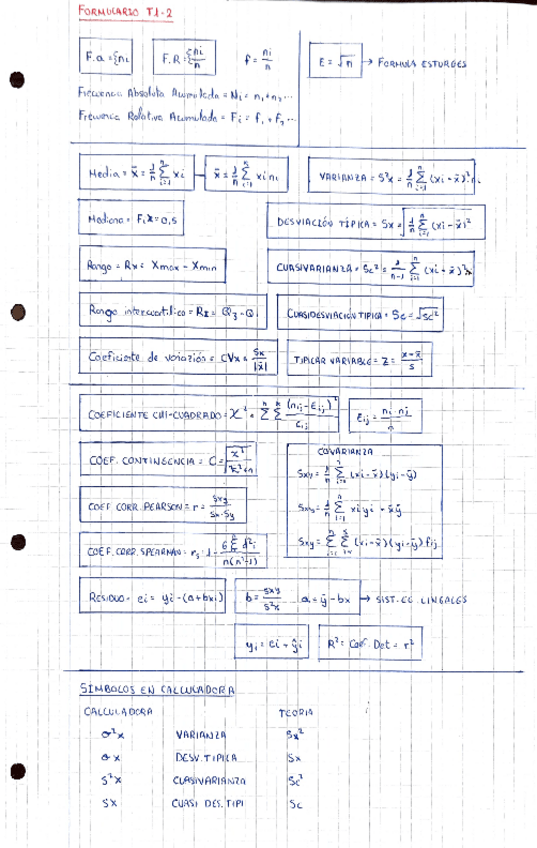 FORMULARIO T1-2
F.a = Σni
F.R = Σ ni/n
f = ni/n
E = √n → FORMULA ESTURGES
Frecuencia Absoluta Acumulada = Ni = n1 + n2 ...
Frecuencia Relativa Acumulada = Fi = f1 + f2 ...
Media = x̄ = 1/n Σ(i=1, n) xi
x̄ = 1/n Σ(i=1, k) xi ni
VARIANZA = S²x = 1/n Σ(i=1, n) (xi - x̄)² ni
Mediana = Fix = 0,5
DESVIACIÓN TÍPICA = Sx = √(1/n Σ(i=1, n) (xi - x̄)²)
Rango = Rx = Xmax - Xmin
CUASIVARIANZA = Sc² = 1/(n-1) Σ(i=1, n) (xi - x̄)²
Rango intercuartílico = RI = Q3 - Q1
CUASIDESVIACION TIPICA = Sc = √sc²
Coeficiente de variación = CVx = Sx/|x̄|
TIPICAR VARIABLE = Z = (x - x̄)/s
COEFICIENTE CHI-CUADRADO = X² = ΣΣ (nij - Eij)²/Eij
Eij = ni · nj / n
COEF. CONTINGENCIA = C = √(X²/(X²+n))
COVARIANZA
Sxy = 1/n Σ(i=1, n) (xi - x̄)(yi - ȳ)
COEF CORR. PEARSON = r = Sxy/(Sx·Sy)
Sxy = 1/n Σ(i=1, n) xi yi - x̄ȳ
COEF. CORR. SPEARMAN = rs = 1 - 6Σd²i/(n(n²-1))
Sxy = ΣΣ (xi - x̄)(yi - ȳ) fij
RESIDUO = ei = yi - (a + bxi)
b = Sxy/S²x a = ȳ - bx → SIST. EC. LINEALES
yi = ei + ŷi
R² = Coef. Det = r²
SIMBOLOS EN CALCULADORA
CALCULADORA TEORIA
σ²x VARIANZA Sx²
σx DESV. TIPICA Sx
S²x CUASIVARIANZA Sc²
Sx CUASI DES. TIPI Sc